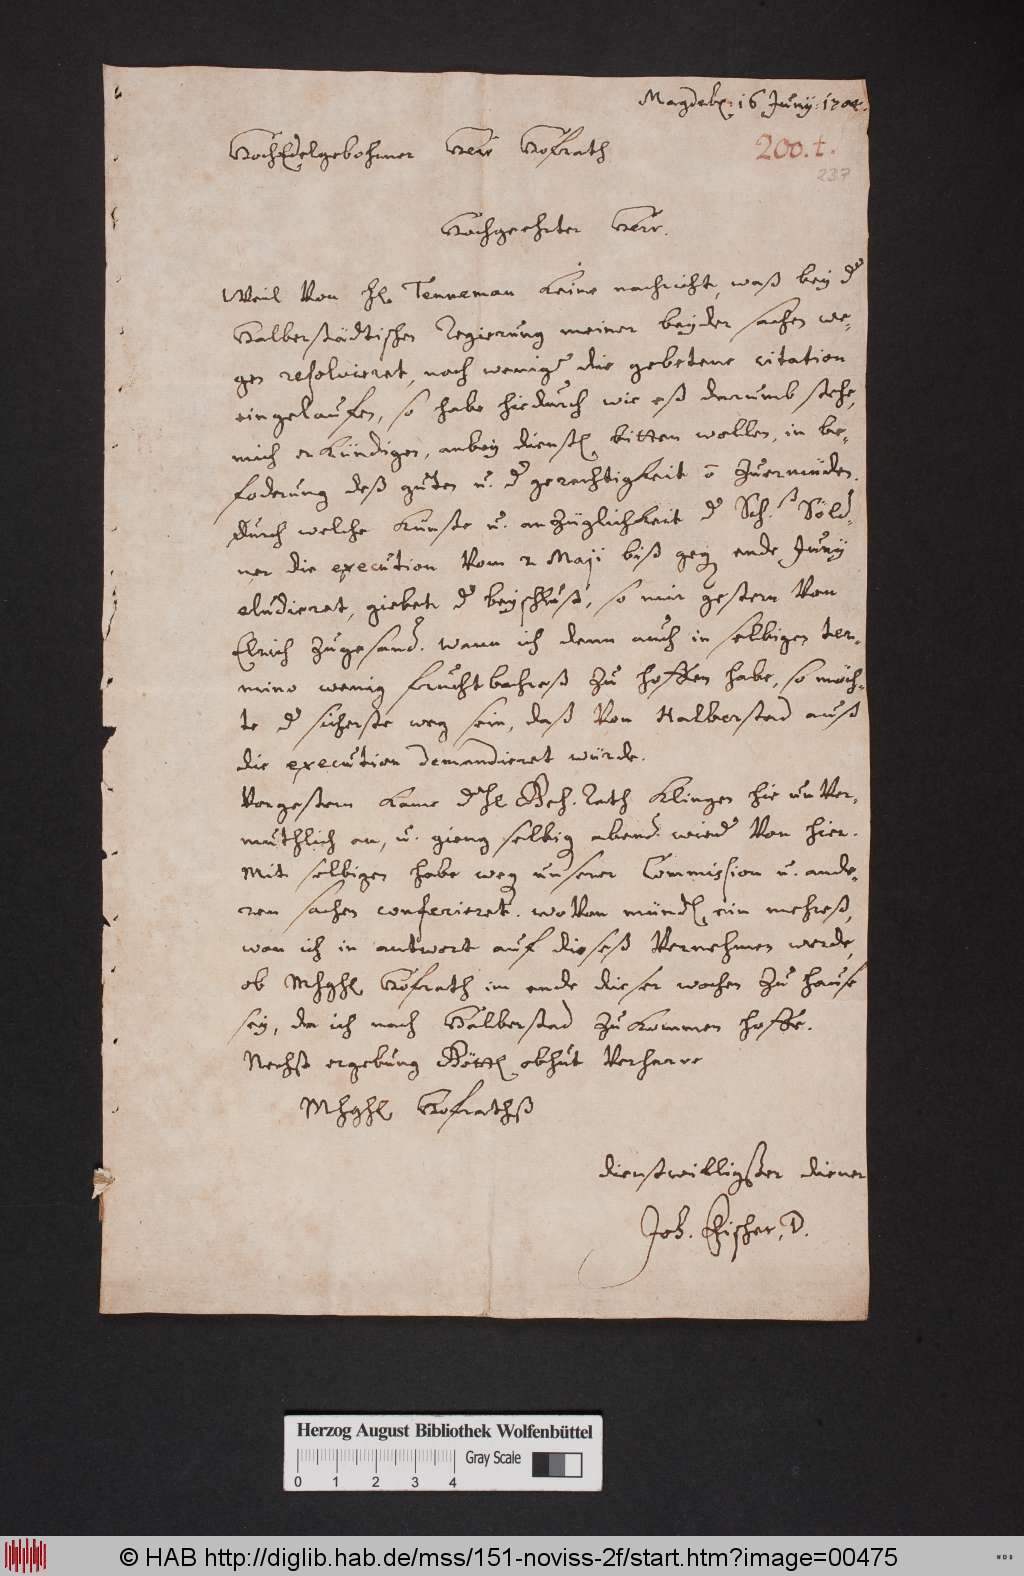 Magdeb. 16 Juny. 1704.
200.t.
237
HochEdelgebohrner Herr Hofrath
Hochgeehrter Herr.
Weil Von H. Tenneman keine nachricht, waß bey d
Halberstädtischen Regierung meiner beyder sachen we-
gen resolvieret, noch wenig die gebetene citation
eingelaufen, so habe hiedurch wie eß darumb stehe,
mich erkündigen, anbey dienstl. bitten wollen, in be-
foderung deß guten u. d gerechtigkeit Zuermüden.
durch welche künste u. anzüglichkeit d Sch. Söld-
ner die execution Vom 2 Maji biß geg ende Juny
eludieret, giebet d beyschluß, so mir gestern Von
Elrich Zugesand. wann ich denn auch in selbigen ter-
mino wenig fruchtbahreß Zu hoffen habe, so möch-
te d sicherste weg sein, daß Von Halberstad auß
die execution demandieret würde.
Vorgestern kame d H. Geh. Rath Klingen hie unVer-
muthlich an, u. gieng selbig abend wied Von hier.
Mit selbigen habe weg unserer Commission u. ande-
ren sachen conferieret. woVon mündl. ein mehreß,
wan ich in antwort auf dieseß Vernehmen werde,
ob MhgH. Hofrath im ende dieser wochen Zu hause
sey, da ich nach Halberstad Zu kommen hoffe.
Nechst ergebung Göttl. obhut Verharre
MhgH. Hofrathß
dienstwilligster diener
Joh. Fischer, D.
Herzog August Bibliothek Wolfenbüttel
Gray Scale
0 1 2 3 4
© HAB http://diglib.hab.de/mss/151-noviss-2f/start.htm?image=00475